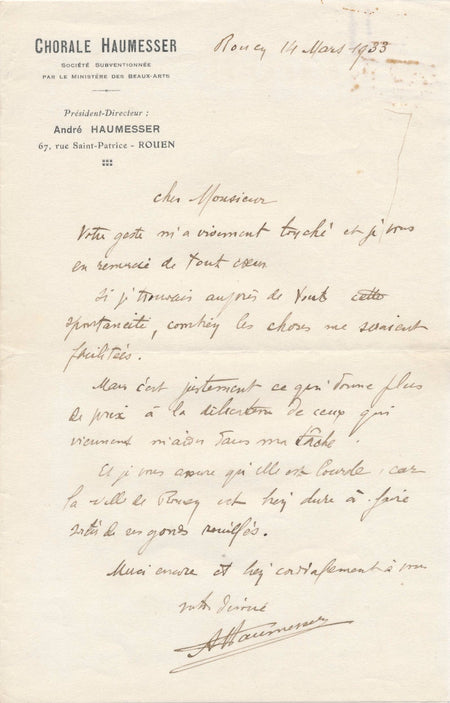 CHORALE HAUMESSER
SOCIÉTÉ SUBVENTIONNÉE
PAR LE MINISTÈRE DES BEAUX-ARTS
Président-Directeur :
André HAUMESSER
67, rue Saint-Patrice - ROUEN
Rouen 14 Mars 1933
cher Monsieur
Votre geste m'a vivement touché et je vous
en remercie de tout cœur
Si je trouvais auprès de tous cette
spontanéité, combien les choses me seraient
facilitées.
Mais c'est justement ce qui donne plus
de prix à la délicatesse de ceux qui
viennent m'aider dans ma tâche.
Et je vous assure qu'elle est lourde, car
la ville de Rouen est bien dure à faire
sortir de ses gonds rouillés.
Merci encore et bien cordialement à vous
votre dévoué
AHaumesser